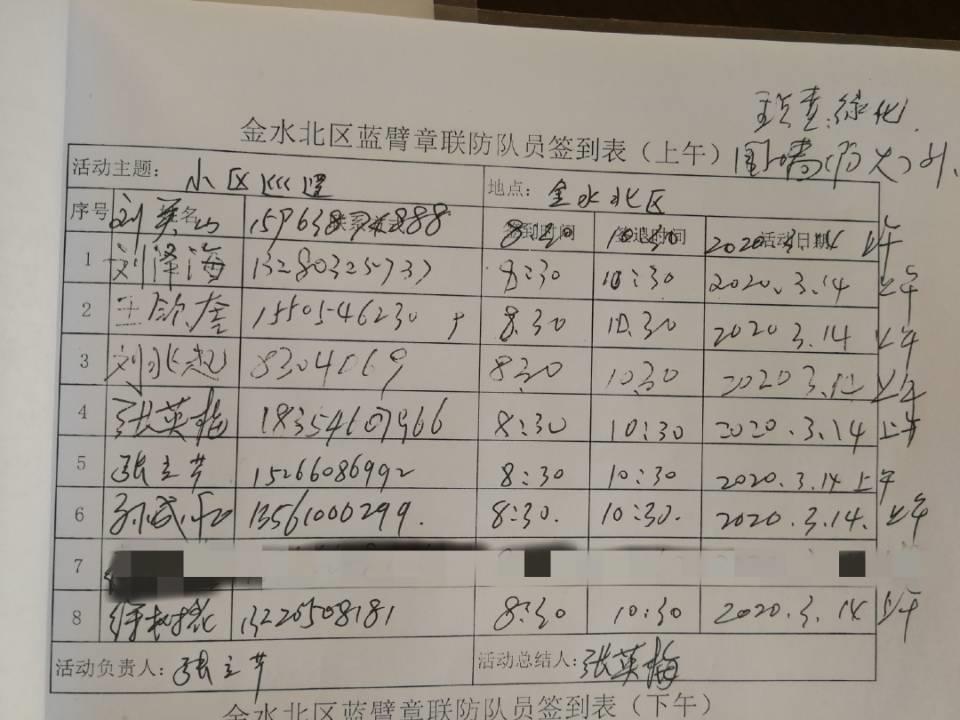 巡查:绿化.
金水北区蓝臂章联防队员签到表（上午） 围墙(防火)外.
活动主题: 小区巡逻 地点: 金水北区
序号 刘英山 888 8:30 签到时间 10:30 签退时间 2020.3.14 活动日期 上午
1 刘泽海 13280325737 8:30 10:30 2020.3.14 上午
2 王欣奎 1550546230 8:30 10:30 2020.3.14 上午
3 8304069 8:30 10:30 2020 3.14 上午
4 张英梅 8:30 10:30 2020.3.14 上午
5 张立芹 15266086992 8:30 10:30 2020.3.14 上午
6 13561000299. 8:30. 10:30. 2020.3.14. 上午
7
8 13220508181 8:30 10:30 2020.3.14 上午
活动负责人: 张立芹 活动总结人: 张英梅
金水北区蓝臂章联防队员签到表（下午）